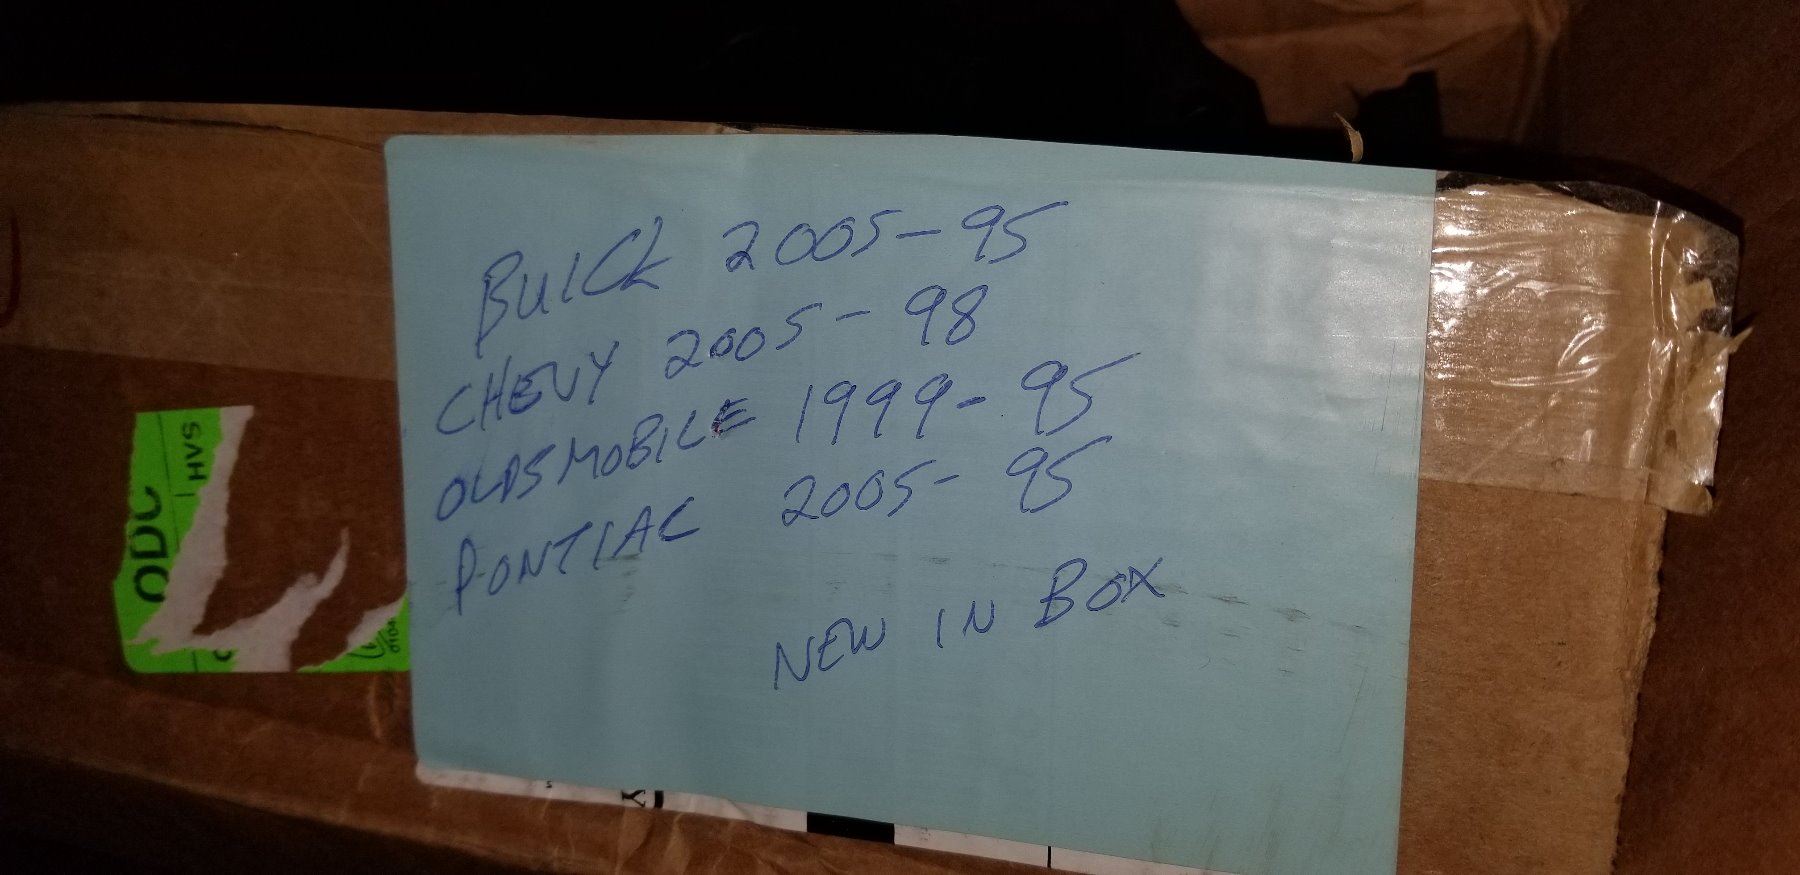 BUICK 2005-95
CHEVY 2005-98
OLDSMOBILE 1999-95
PONTIAC 2005-95
NEW IN BOX
ODC
HVS